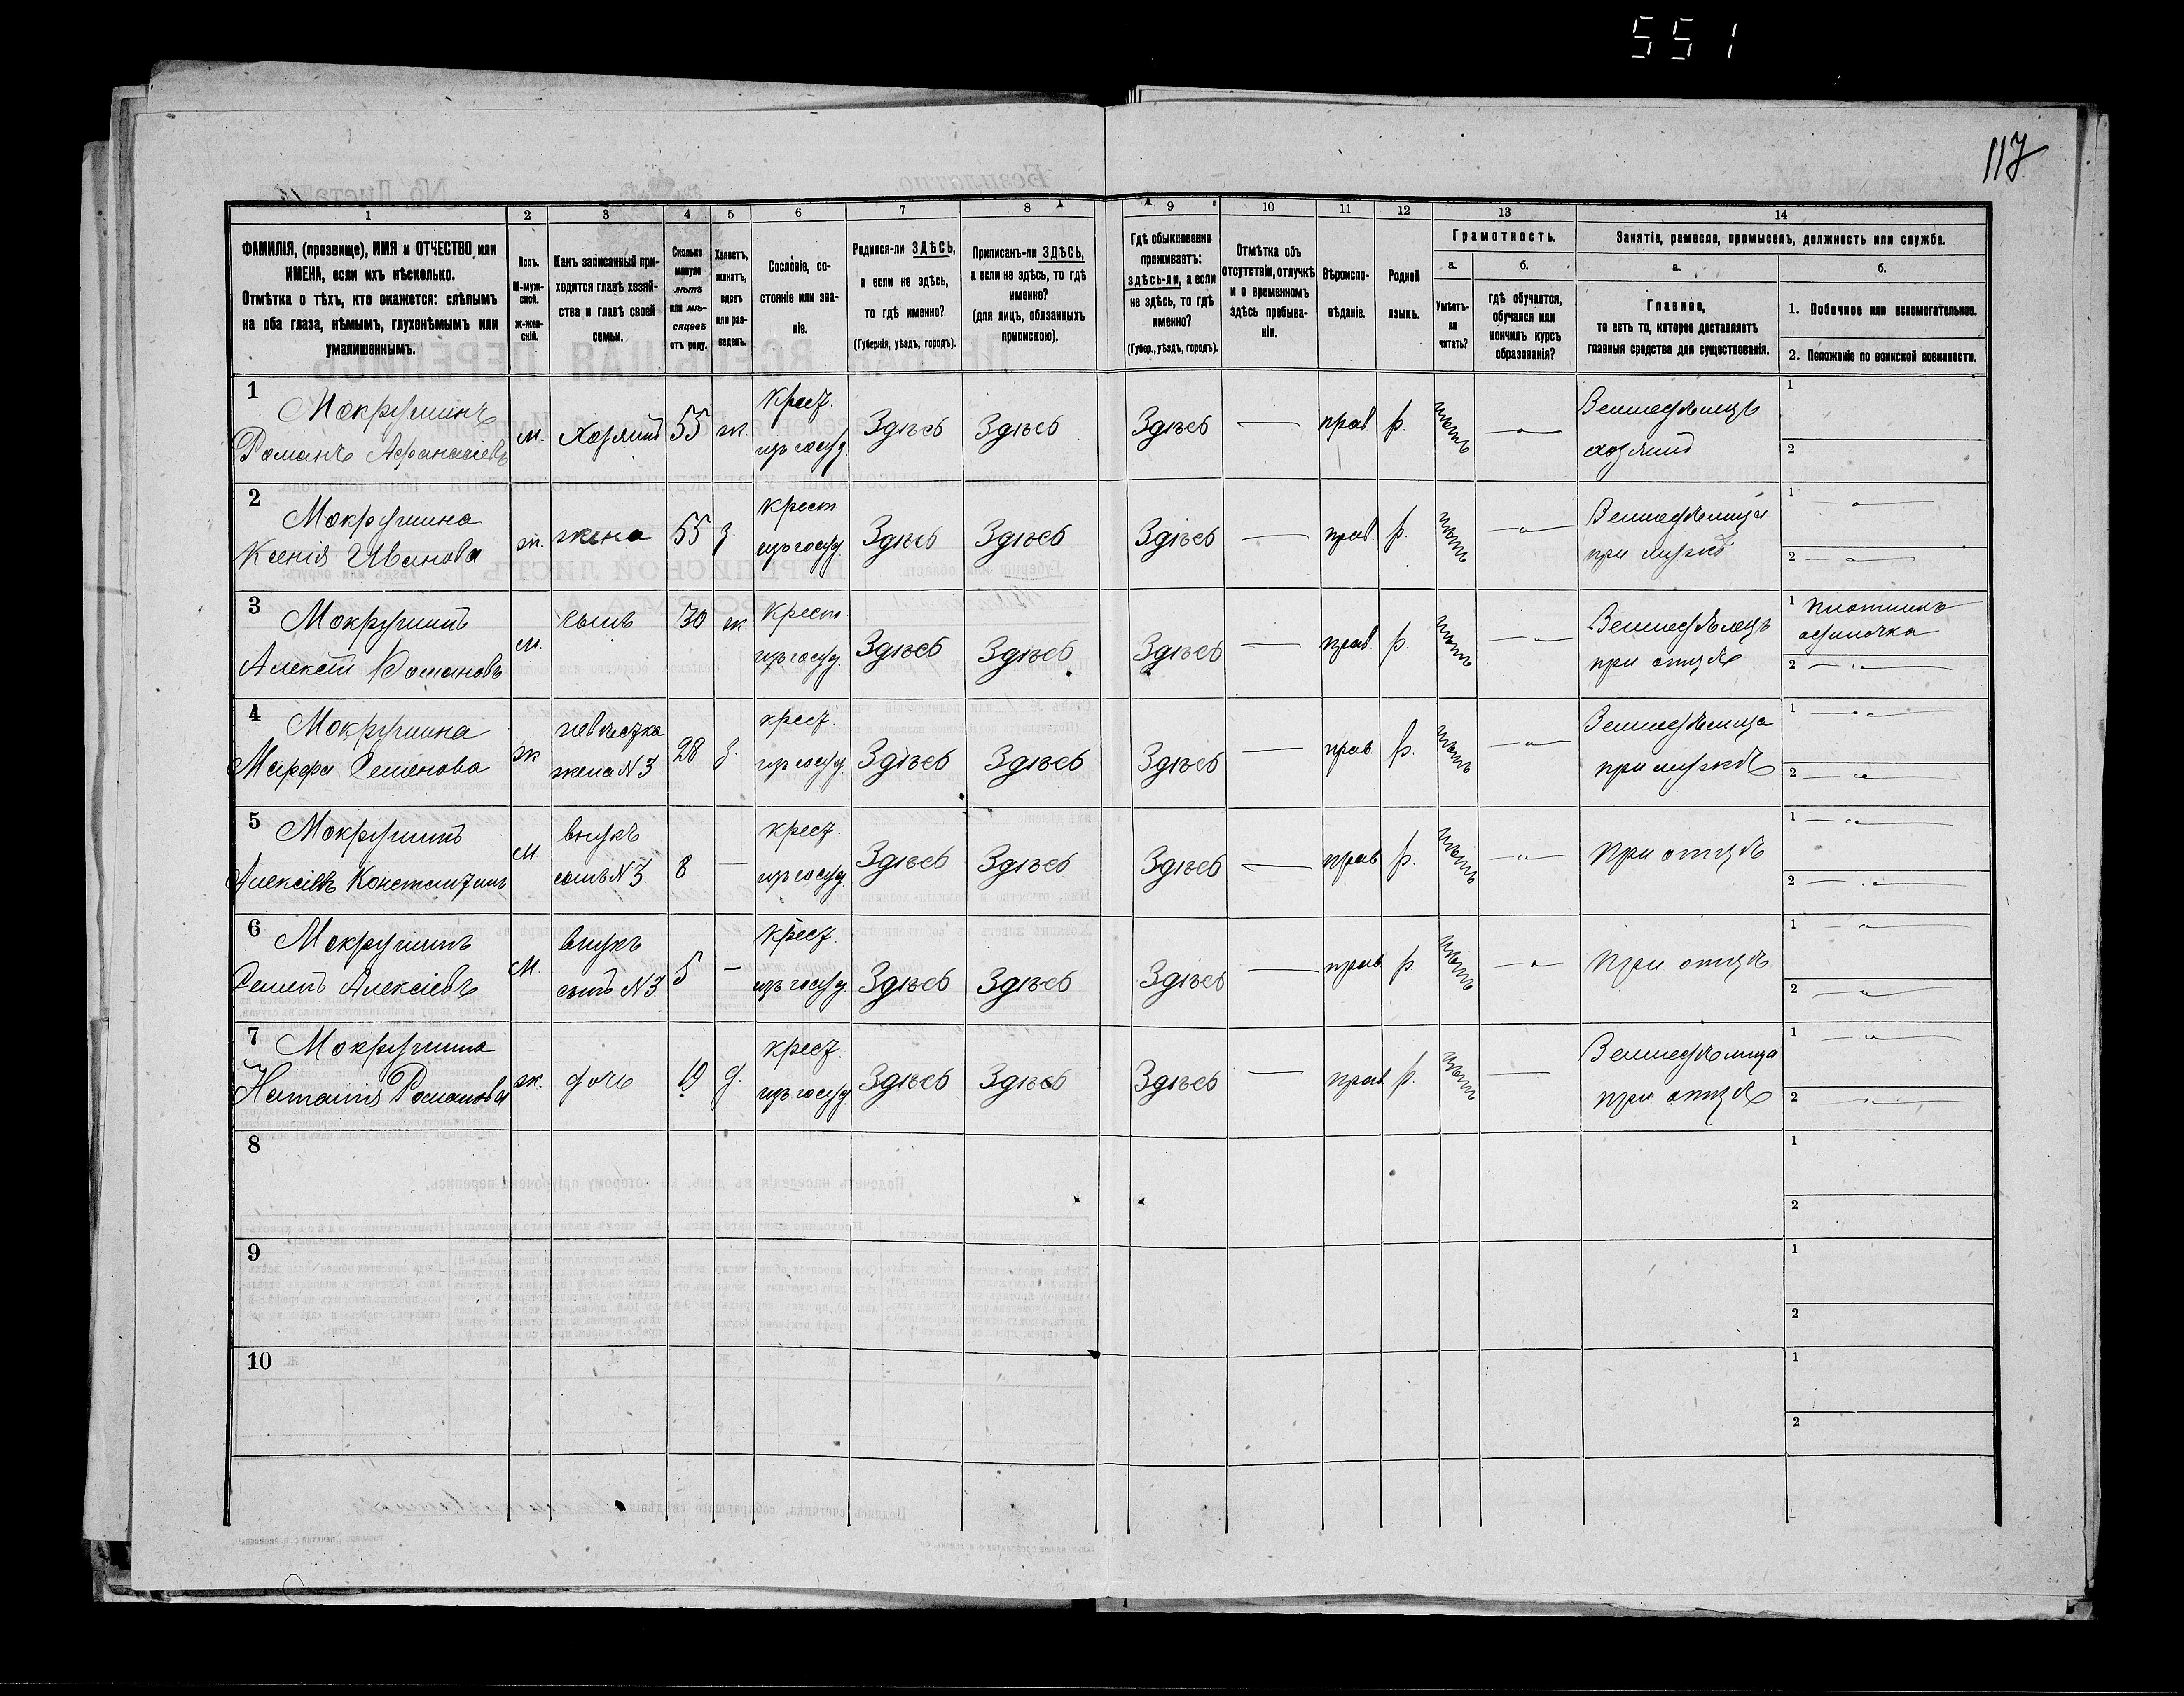 551
117
1 2 3 4 5 6 7 8 9 10 11 12 13 14
ФАМИЛІЯ, (прозвище), ИМЯ и ОТЧЕСТВО или
ИМЕНА, если ихъ нѣсколько.
Отмѣтка о тѣхъ, кто окажется: слѣпымъ
на оба глаза, нѣмымъ, глухонѣмымъ или
умалишеннымъ.
Полъ.
М-муж-
ской.
ж-жен-
скій.
Какъ записанный при-
ходится главѣ хозяй-
ства и главѣ своей
семьи.
Сколько
минуло
лѣтъ
или мѣ-
сяцевъ
отъ роду.
Холостъ,
женатъ,
вдовъ
или раз-
веденъ.
Сословіе, со-
стояніе или зва-
ніе.
Родился-ли ЗДѢСЬ,
а если не здѣсь,
то гдѣ именно?
(Губернія, уѣздъ, городъ).
Приписанъ-ли ЗДѢСЬ,
а если не здѣсь, то гдѣ
именно?
(для лицъ, обязанныхъ
припискою).
Гдѣ обыкновенно
проживаетъ:
здѣсь-ли, а если
не здѣсь, то гдѣ
именно?
(Губер., уѣздъ, городъ).
Отмѣтка объ
отсутствіи, отлучкѣ
и о временномъ
здѣсь пребыва-
ніи.
Вѣроиспо-
вѣданіе.
Родной
языкъ.
Грамотность.
а.
Умѣетъ-
ли
читать?
б.
гдѣ обучается,
обучался или
кончилъ курсъ
образованія?
Занятіе, ремесло, промыселъ, должность или служба.
а.
Главное,
то есть то, которое доставляетъ
главныя средства для существованія.
б.
1. Побочное или вспомогательное.
2. Положеніе по воинской повинности.
1 Мокрушинъ крест. Земледѣлецъ 1
Романъ Афанасіевъ м. Хозяинъ 55 ж. изъ госуд. Здѣсь Здѣсь Здѣсь — прав. р. нѣтъ — хозяинъ 2
2 Мокрушина крест. Земледѣлица 1
Ксенія Иванова ж. жена 55 з. изъ госуд. Здѣсь Здѣсь Здѣсь — прав. р. нѣтъ — при мужѣ 2
3 Мокрушинъ сынъ 30 ж. крест. Земледѣлецъ 1 плотникъ
одиночка
Алексѣй Романовъ м. изъ госуд. Здѣсь Здѣсь Здѣсь — прав. р. нѣтъ — при отцѣ 2
4 Мокрушина невѣстка крест. Земледѣлица 1
Марфа Семенова ж жена N3 28 з. изъ госуд. Здѣсь Здѣсь Здѣсь — прав. р. нѣтъ — при мужѣ 2
5 Мокрушинъ внукъ крест. 1
Алексіевъ Константинъ м сынъ N3 8 — изъ госуд. Здѣсь Здѣсь Здѣсь — прав р. нѣтъ — при отцѣ 2
6 Мокрушинъ внукъ крест. 1
Семенъ Алексіевъ м. сынъ N3 5 — изъ госуд. Здѣсь Здѣсь Здѣсь — прав р. нѣтъ — при отцѣ 2
7 Мокрушина крест. Земледѣлица 1
Наталія Романова ж. дочь 19 д. изъ госуд Здѣсь Здѣсь Здѣсь — прав р. нѣтъ — при отцѣ 2
8 1
2
9 1
2
10 1
2